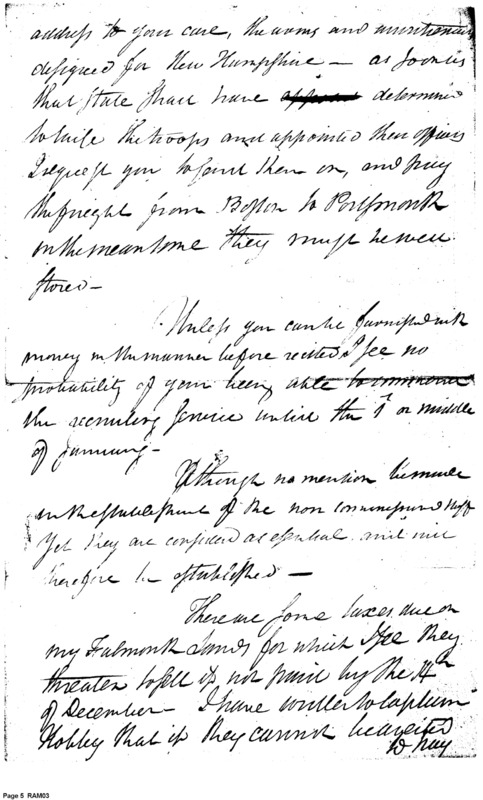 address to your care, the arms and
designed for New Hampshire — as soon as
that State shall have determined
to raise the troops and appointed their officers
I request you to send them on, and pay
the freight from Boston to Portsmouth
in the mean time they must be well
stored —
Unless you can be furnished with
money in the manner before recited I see no
probability of your being able to commence
the recruiting service until the 1st or middle
of January —
Although no mention be made
in the establishment of the non commissioned staff
yet they are considered as essential and will
therefore be established —
There are some taxes due on
my Falmouth Lands for which I see they
threaten to sell if not paid by the 14th
of December — I have written to Captain
Hobby that if they cannot be averted
to pay
Page 5 RAM03